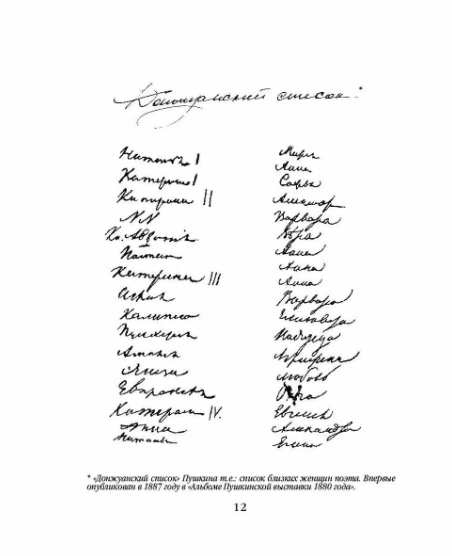 Донжуанский список*
Наталья I
Катерина I
Катерина II
NN
Кн. Авдотья
Настасья
Катерина III
Аглая
Калипсо
Пульхерия
Амалия
Элиза
Евпраксея
Катерина IV.
Анна
Наталья
Мария
Анна
Софья
Александра
Варвара
Вера
Анна
Анна
Анна
Варвара
Елизавета
Надежда
Аграфена
Любовь
Ольга
Евгения
Александра
Елена
* «Донжуанский список» Пушкина т.е.: список близких женщин поэта. Впервые
опубликован в 1887 году в «Альбоме Пушкинской выставки 1880 года».
12